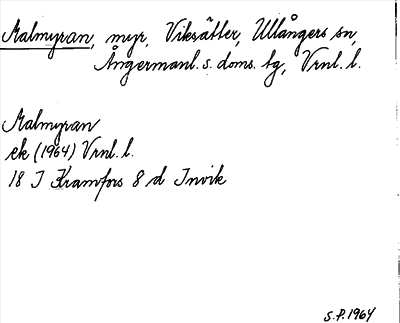 Malmyran, myr, Viksätter, Ullångers sn,
Ångermanl. s. doms. tg, Vrnl. l.
Malmyran
ek (1964) Vrnl. l.
18 I Kramfors 8 d Invik
S.P. 1964